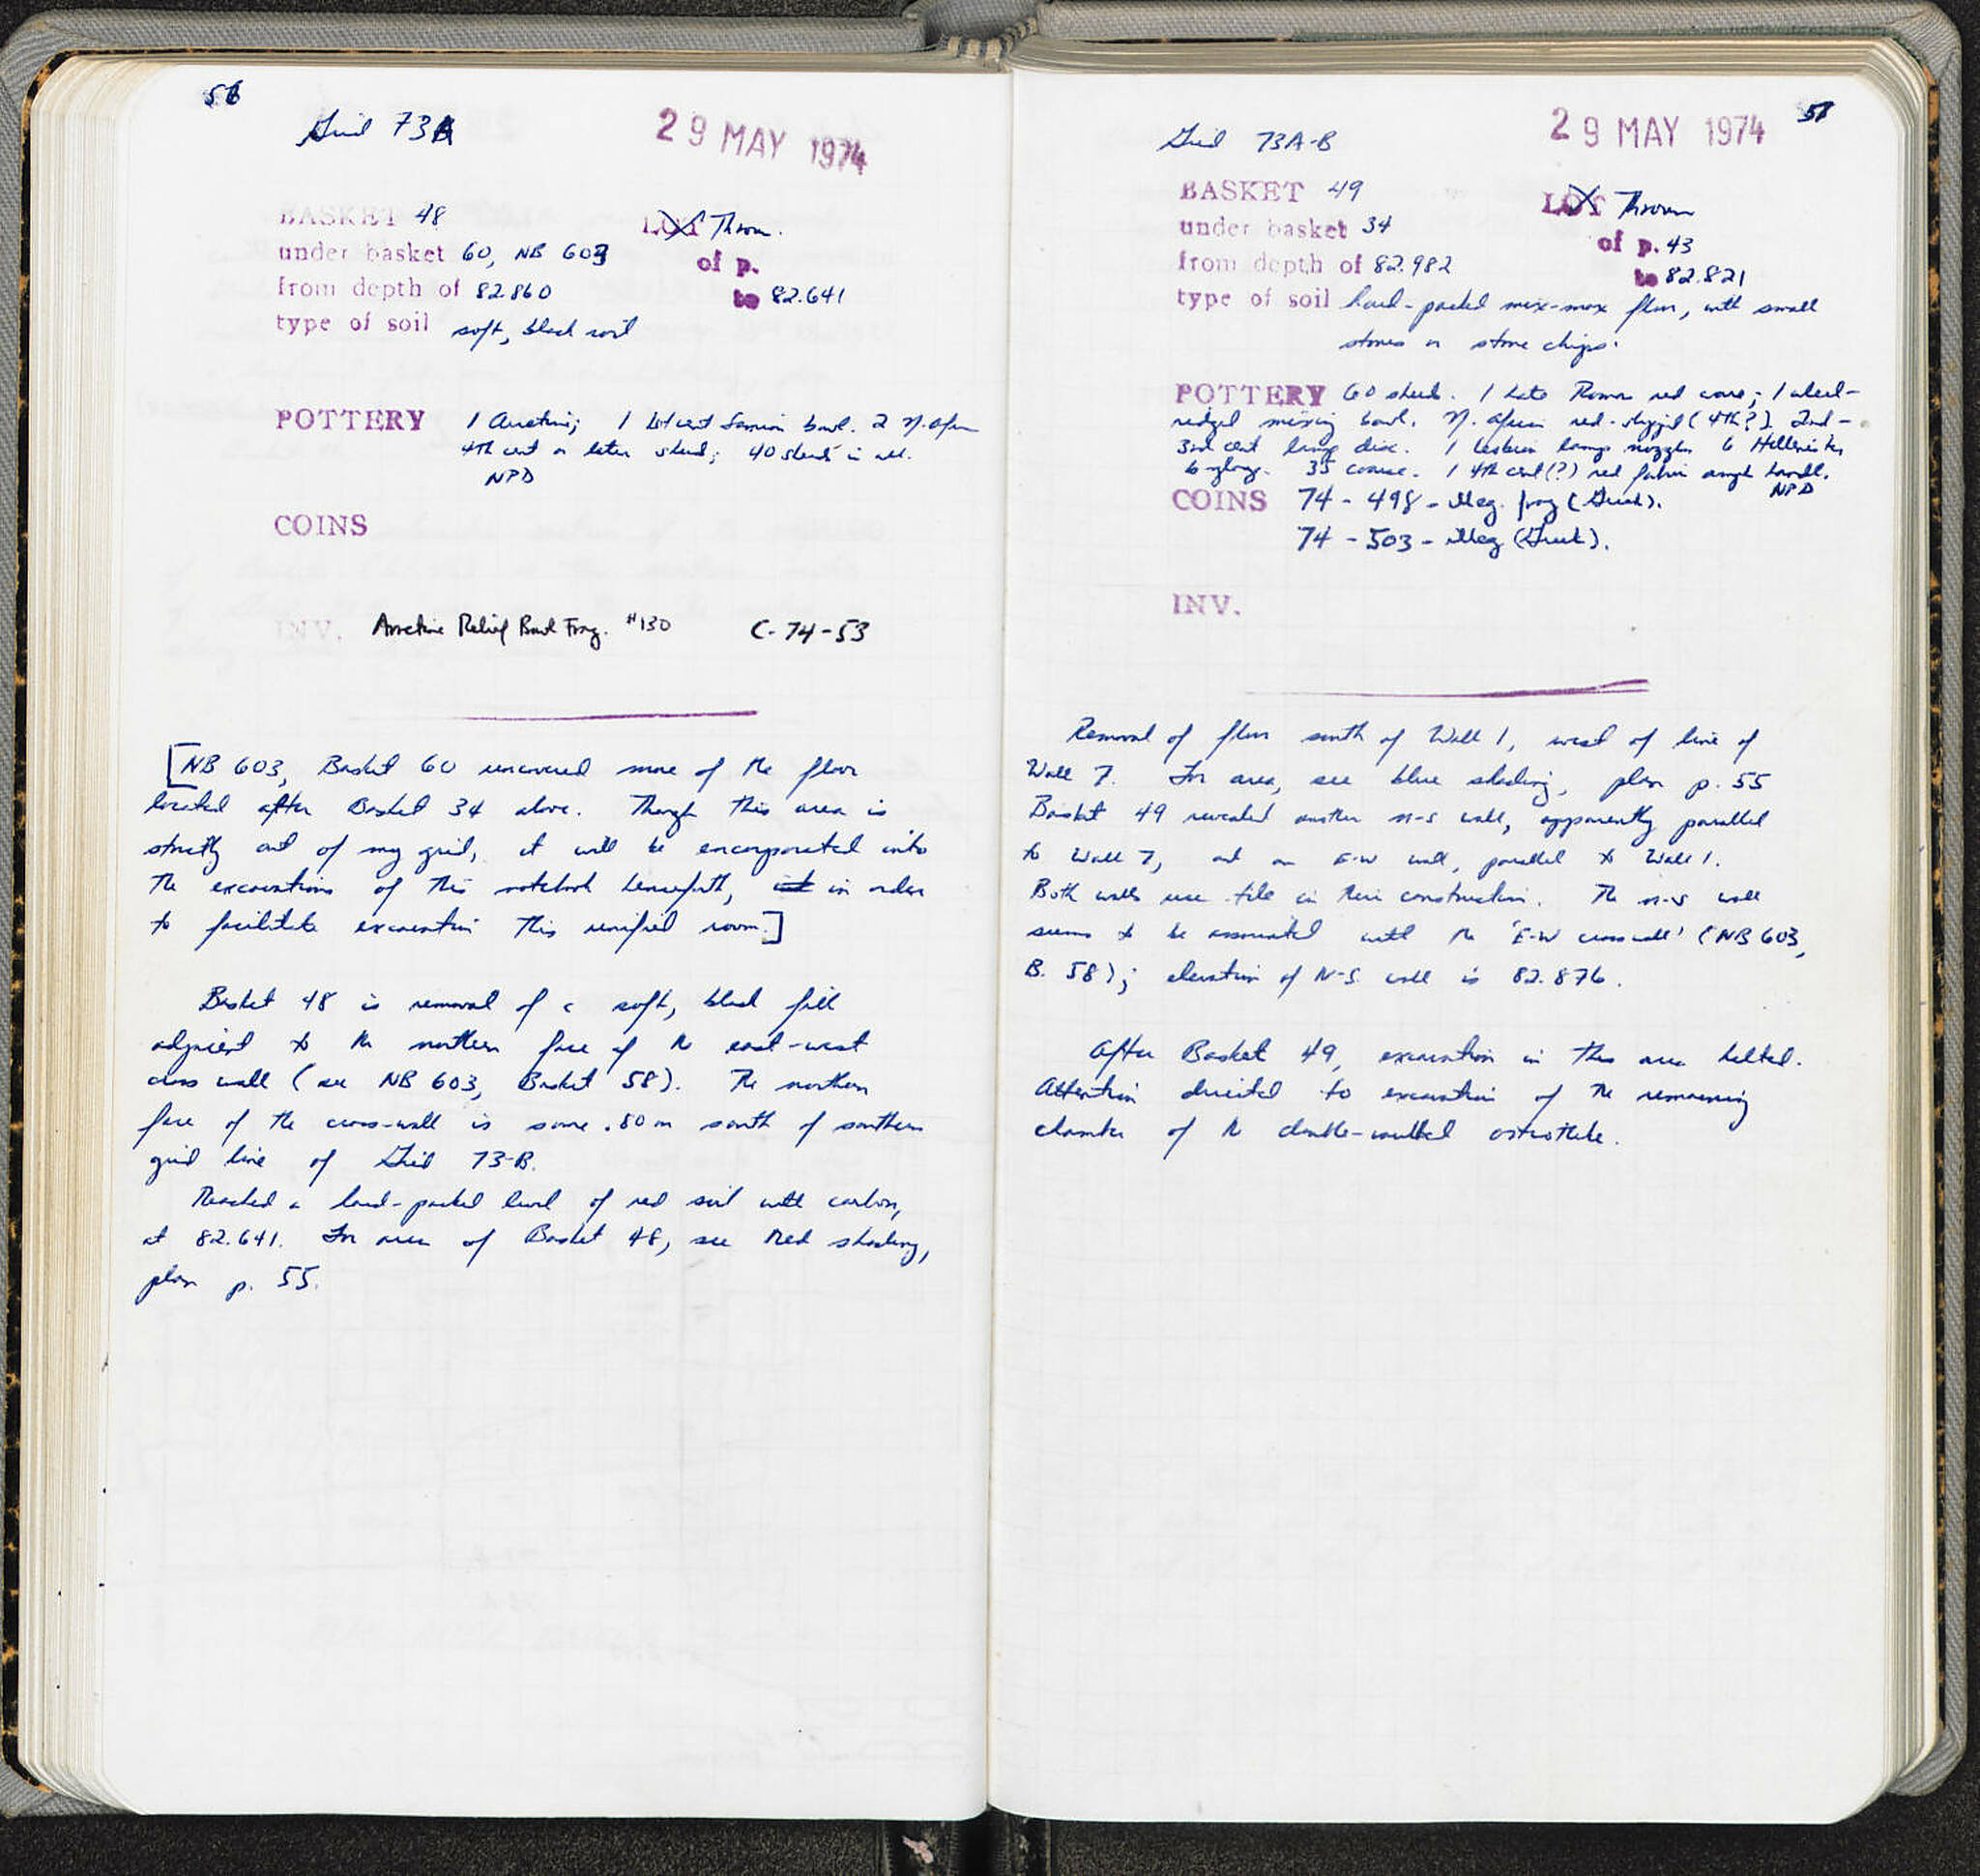 56
Grid 73A
29 MAY 1974
BASKET 48
LOT Thrown.
under basket 60, NB 603
of p.
from depth of 82.860
to 82.641
type of soil soft, black soil
POTTERY 1 Arretine; 1 1st cent Samian bowl. 2 N. Afric
4th cent or later sherd; 40 sherds in all.
NPD
COINS
INV. Arretine Relief Bowl Frag. #130 C-74-53
[NB 603, Basket 60 uncovered more of the floor
located after Basket 34 above. Though this area is
strictly out of my grid, it will be encorporated into
the excavations of this notebook henceforth, in order
to facilitate excavation this unified room.]
Basket 48 is removal of a soft, black fill
adjacent to the northern face of the east-west
cross wall (see NB 603, Basket 58). The northern
face of the cross-wall is some .80 m south of southern
grid line of Grid 73-B.
Reached a hard-packed level of red soil with carbon,
at 82.641. For area of Basket 48, see Red shading,
plan p. 55.
57
Grid 73A-B
29 MAY 1974
BASKET 49
LOT Thrown
under basket 34
of p. 43
from depth of 82.982
to 82.821
type of soil hard-packed mix-max floor, with small
stones or stone chips.
POTTERY 60 sherds. 1 Late Roman red ware; 1 wheel-
ridged mixing bowl. N. African red-slipped (4th?). 2nd-
3rd cent lamp disc. 1 Lesbian lamp nozzle 6 Hellenistic
b-glaze. 35 coarse. 1 4th cent(?) red fabric amph handle.
NPD
COINS 74-498 - illeg. frag (Greek).
74-503 - illeg (Greek).
INV.
Removal of floor south of Wall 1, west of line of
Wall 7. For area, see blue shading, plan p. 55
Basket 49 revealed another n-s wall, apparently parallel
to Wall 7, and an E-W wall, parallel to Wall 1.
Both walls use tile in their construction. The n-s wall
seems to be associated with the 'E-W cross wall' (NB 603,
B. 58); elevation of N-S wall is 82.876.
After Basket 49, excavation in this area halted.
Attention directed to excavation of the remaining
chamber of the double-vaulted ostotheke.